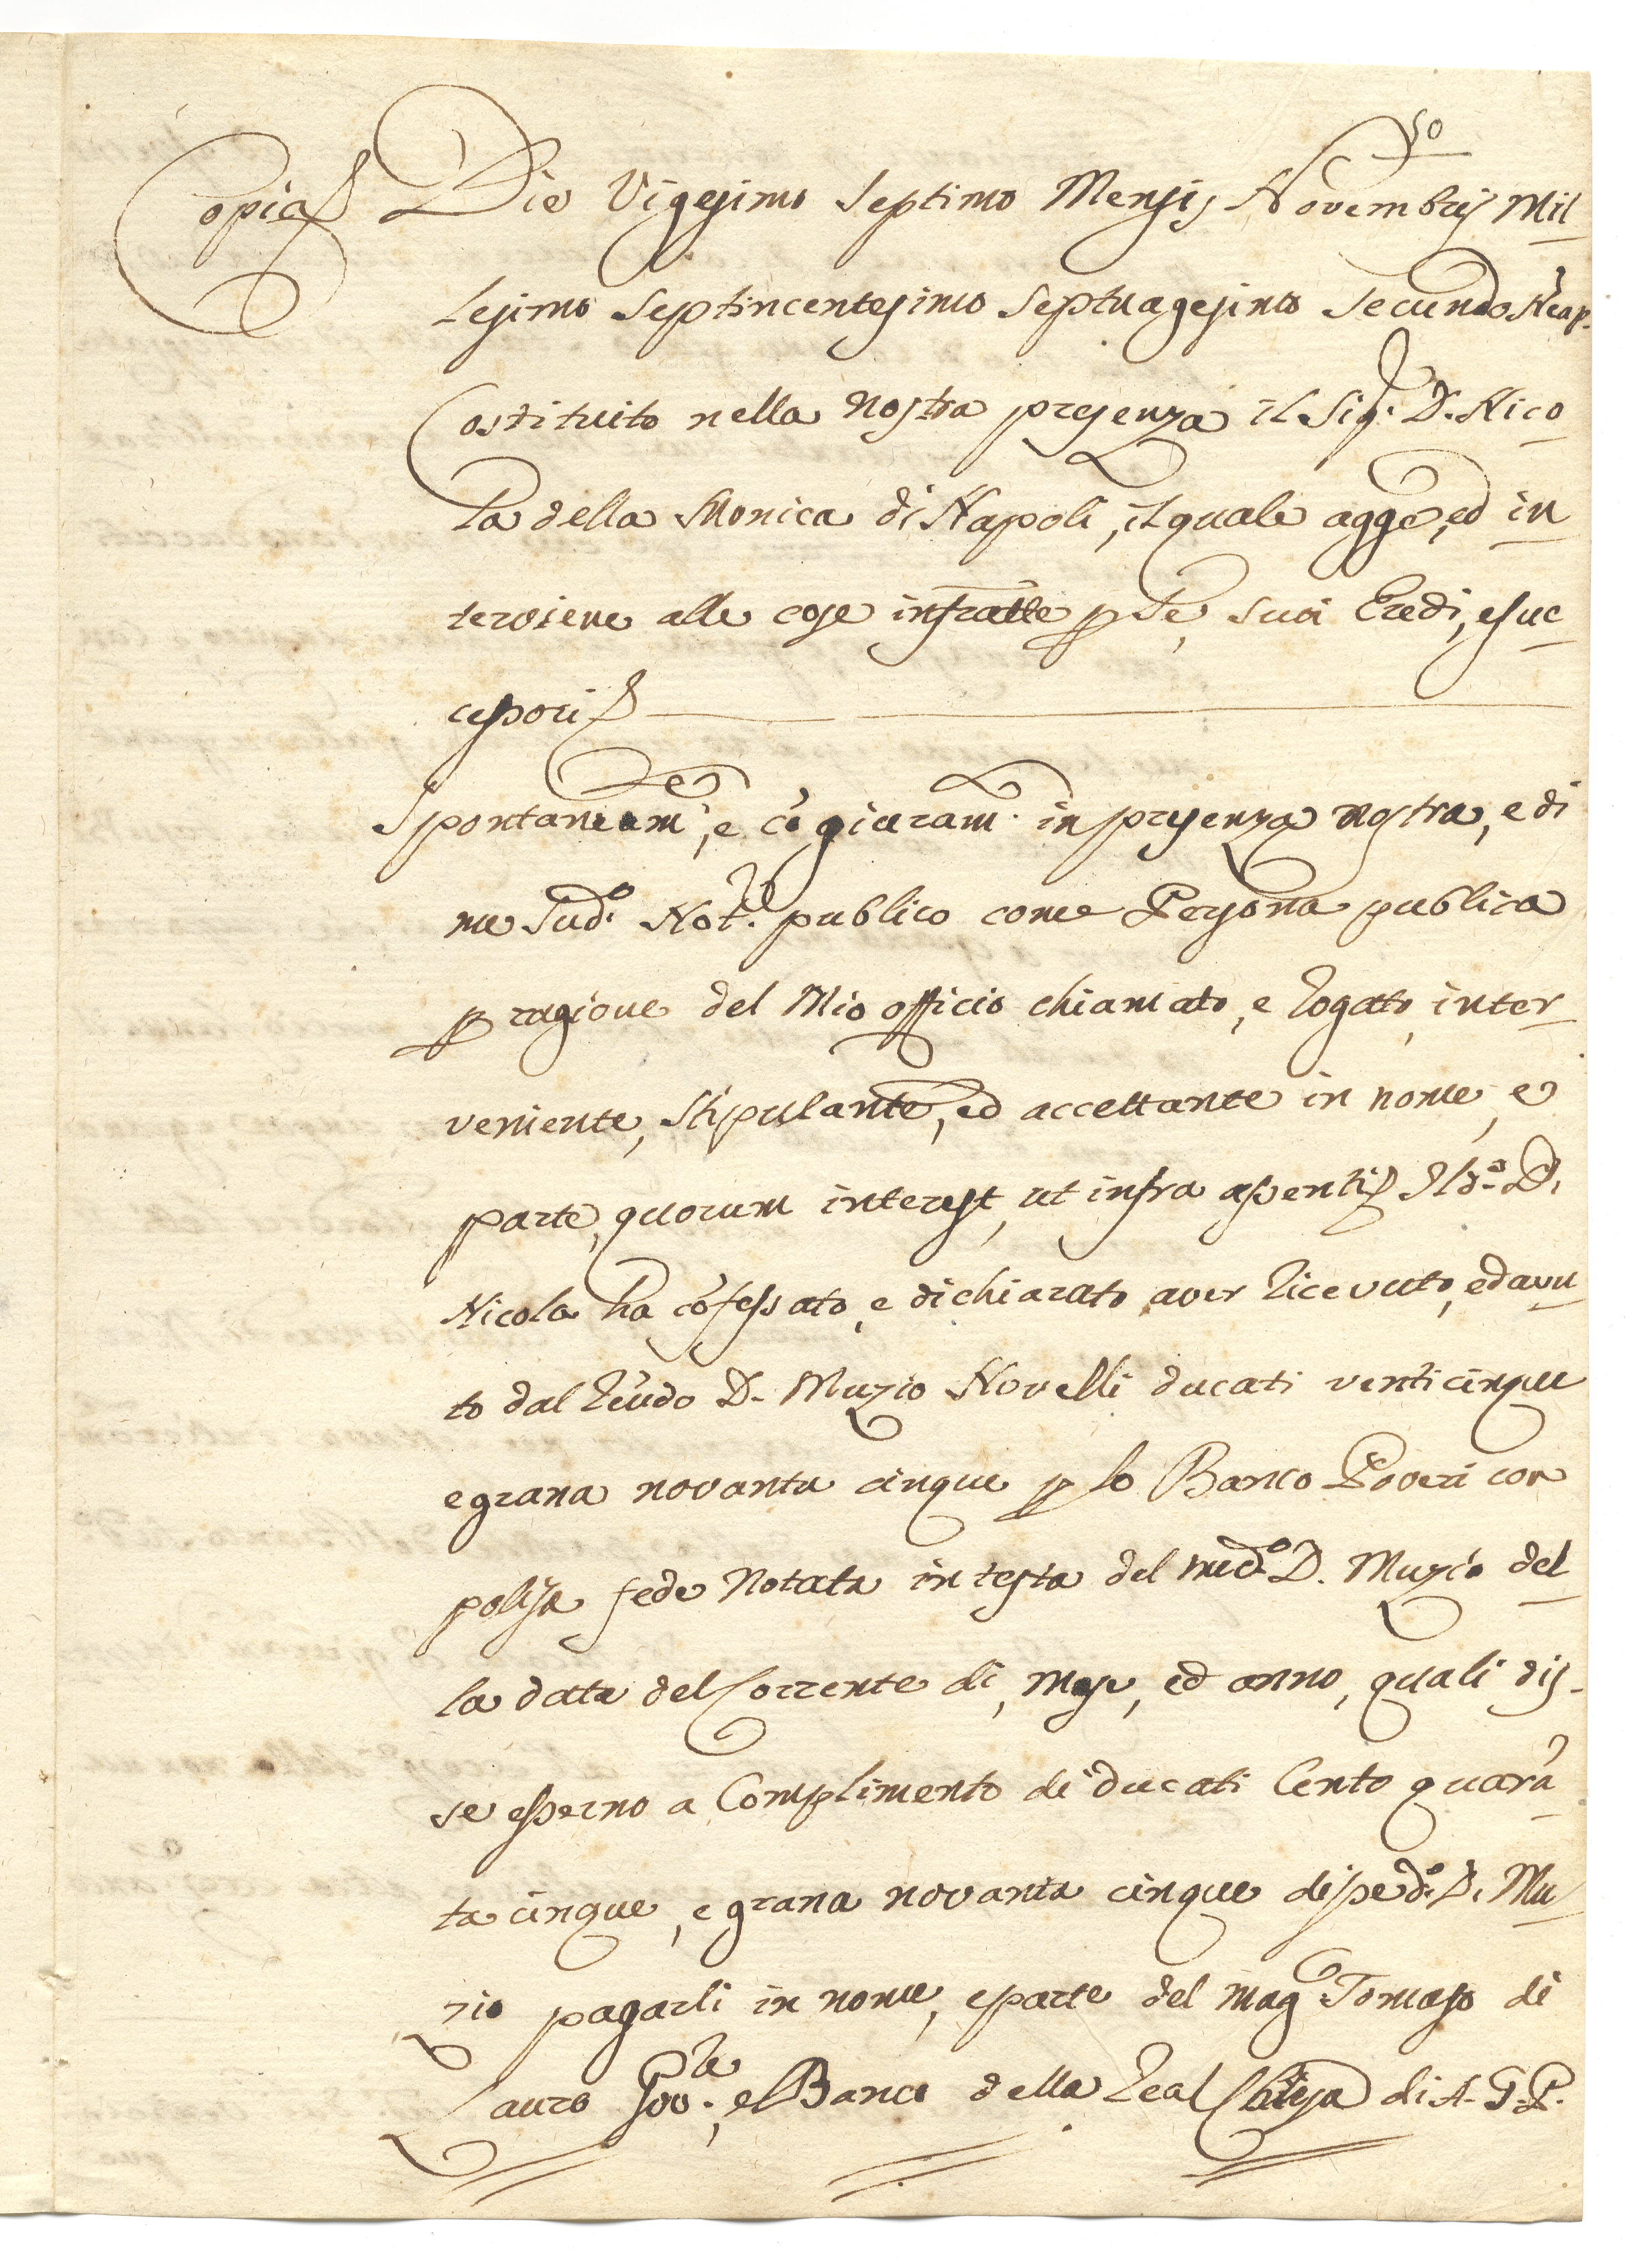 50
Copia Die Vigesimo Septimo Mensis Novembris Mil
lesimo Septincentesimo Septuagesimo secundo Neap.
Costituito nella nostra presenza il Sig.r D. Nico
la della Monica di Napoli, il quale agge, ed in
terviene alle cose infratte p se, suoi Eredi, e suc
cessori
Spontaneam.te, e cō giuram.to in presenza nostra, e di
me Sud.o Not.r publico come Persona publica
p ragione del Mio officio chiamato, e rogato, inter
veniente, stipulante, ed accettante in nome, e
parte, quorum interest, ut infra assentis Il d.o D.
Nicola ha cōfessato, e dichiarato aver ricevuto, ed avu
to dal Revdo D. Muzio Novelli ducati venticinque
e grana novanta cinque p lo Banco Poveri con
polisa fede Notata in testa del med.o D. Muzio del
la data del Corrente di, mese, ed anno, quali dis-
se esserno a Complimento di ducati Cento quarā
ta cinque, e grana novanta cinque disse d.o D. Mu
zio pagarli in nome, e parte del mag.co Tomaso di
Lauro Gov.re, el Banco della Real Chiesa di A. G. P.